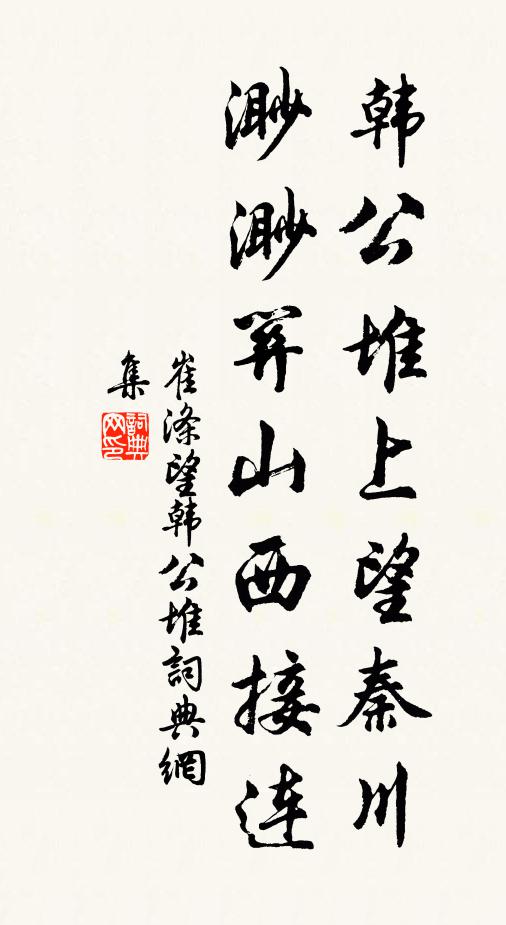 韩公堆上望秦川
渺渺关山西接连
崔涤望韩公堆詞典網
集
詞典
网印